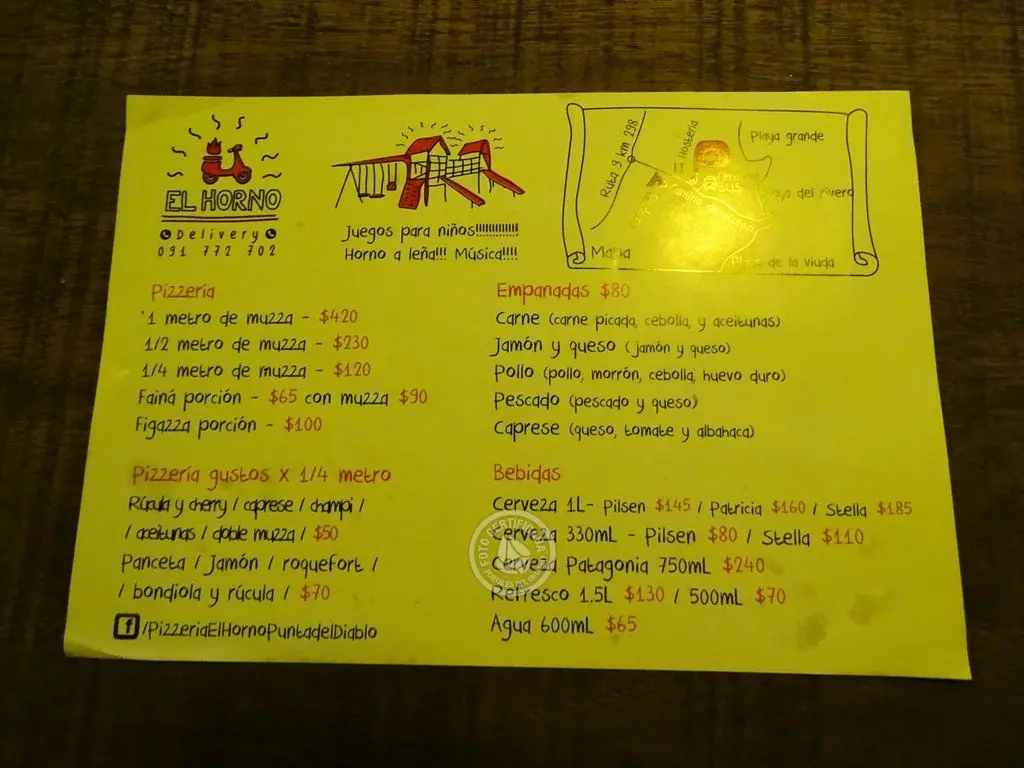 EL HORNO
Delivery
091 772 702
Juegos para niños!!!!!!!!!!!!
Horno a leña!!! Música!!!!
Ruta 9 km 298
Hostería
Playa grande
del rivero
Mapa
de la viuda
Pizzería
1 metro de muzza - $420
1/2 metro de muzza - $230
1/4 metro de muzza - $120
Fainá porción - $65 con muzza $90
Figazza porción - $100
Pizzería gustos x 1/4 metro
Rúcula y cherry / caprese / champi /
/ aceitunas / doble muzza / $50
Panceta / Jamón / roquefort /
/ bondiola y rúcula / $70
f /PizzeriaElHornoPuntadelDiablo
Empanadas $80
Carne (carne picada, cebolla, y aceitunas)
Jamón y queso (jamón y queso)
Pollo (pollo, morrón, cebolla, huevo duro)
Pescado (pescado y queso)
Caprese (queso, tomate y albahaca)
Bebidas
Cerveza 1L- Pilsen $145 / Patricia $160 / Stella $185
Cerveza 330mL - Pilsen $80 / Stella $110
Cerveza Patagonia 750mL $240
Refresco 1.5L $130 / 500mL $70
Agua 600mL $65
FOTO CERTIFICADA